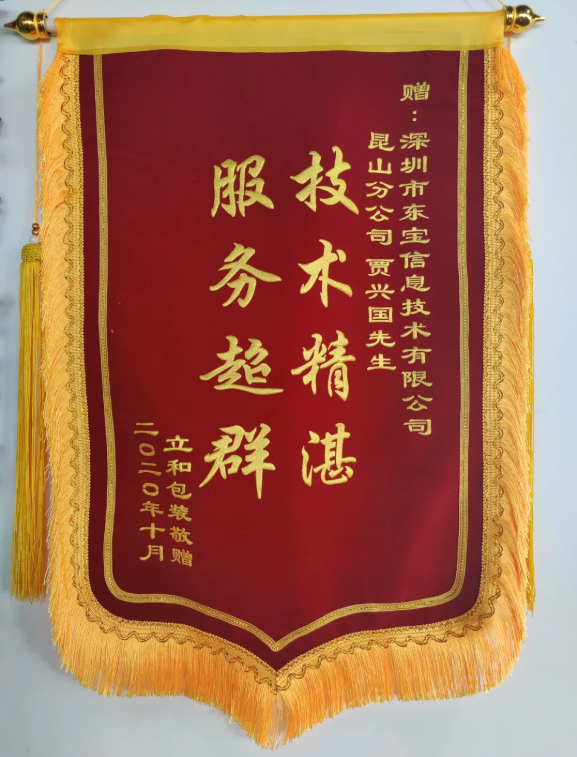 赠：深圳市东宝信息技术有限公司
昆山分公司 贾兴国先生
技术精湛
服务超群
立和包装敬赠
二〇二〇年十月